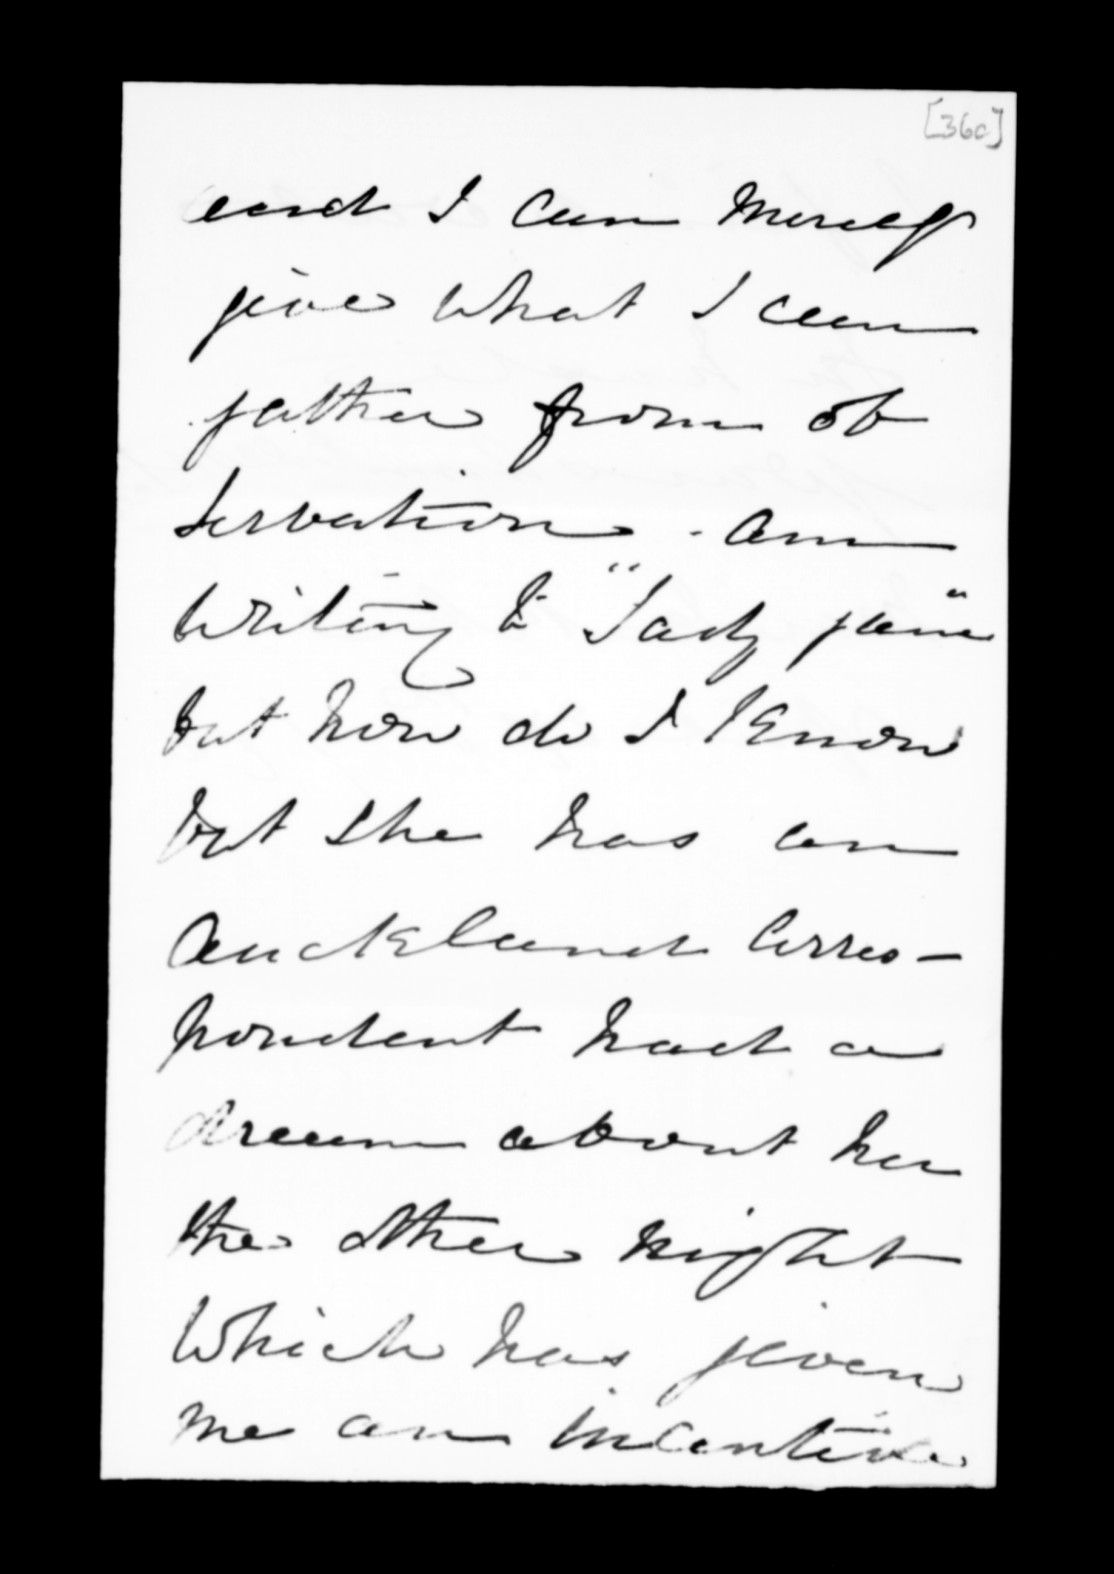 [36c]
and I can merely
give what I can
gather from ob
servation - am
writing to "Lady Jane"
but how do I know
but she has an
Auckland Corres-
pondent had a
dream about her
the other night
which has given
me an incentive